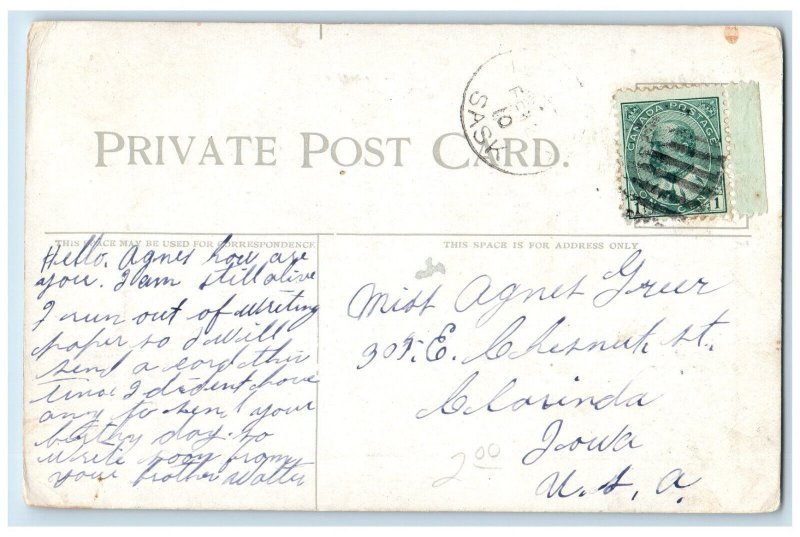 PRIVATE POST CARD.
FE
10
SASK
CANADA POSTAGE
1 1
THIS SPACE MAY BE USED FOR CORRESPONDENCE
THIS SPACE IS FOR ADDRESS ONLY
Hello. Agnes how are
you. I am still alive
I run out of writing
paper so I will
send a card this
time I dident have
any to sen your
birthy day. so
write soon from
your brother Walter
Miss Agnes Greer
305. E. Chesnut, st.,
Clarinda
Iowa
U. S. A.
2 00